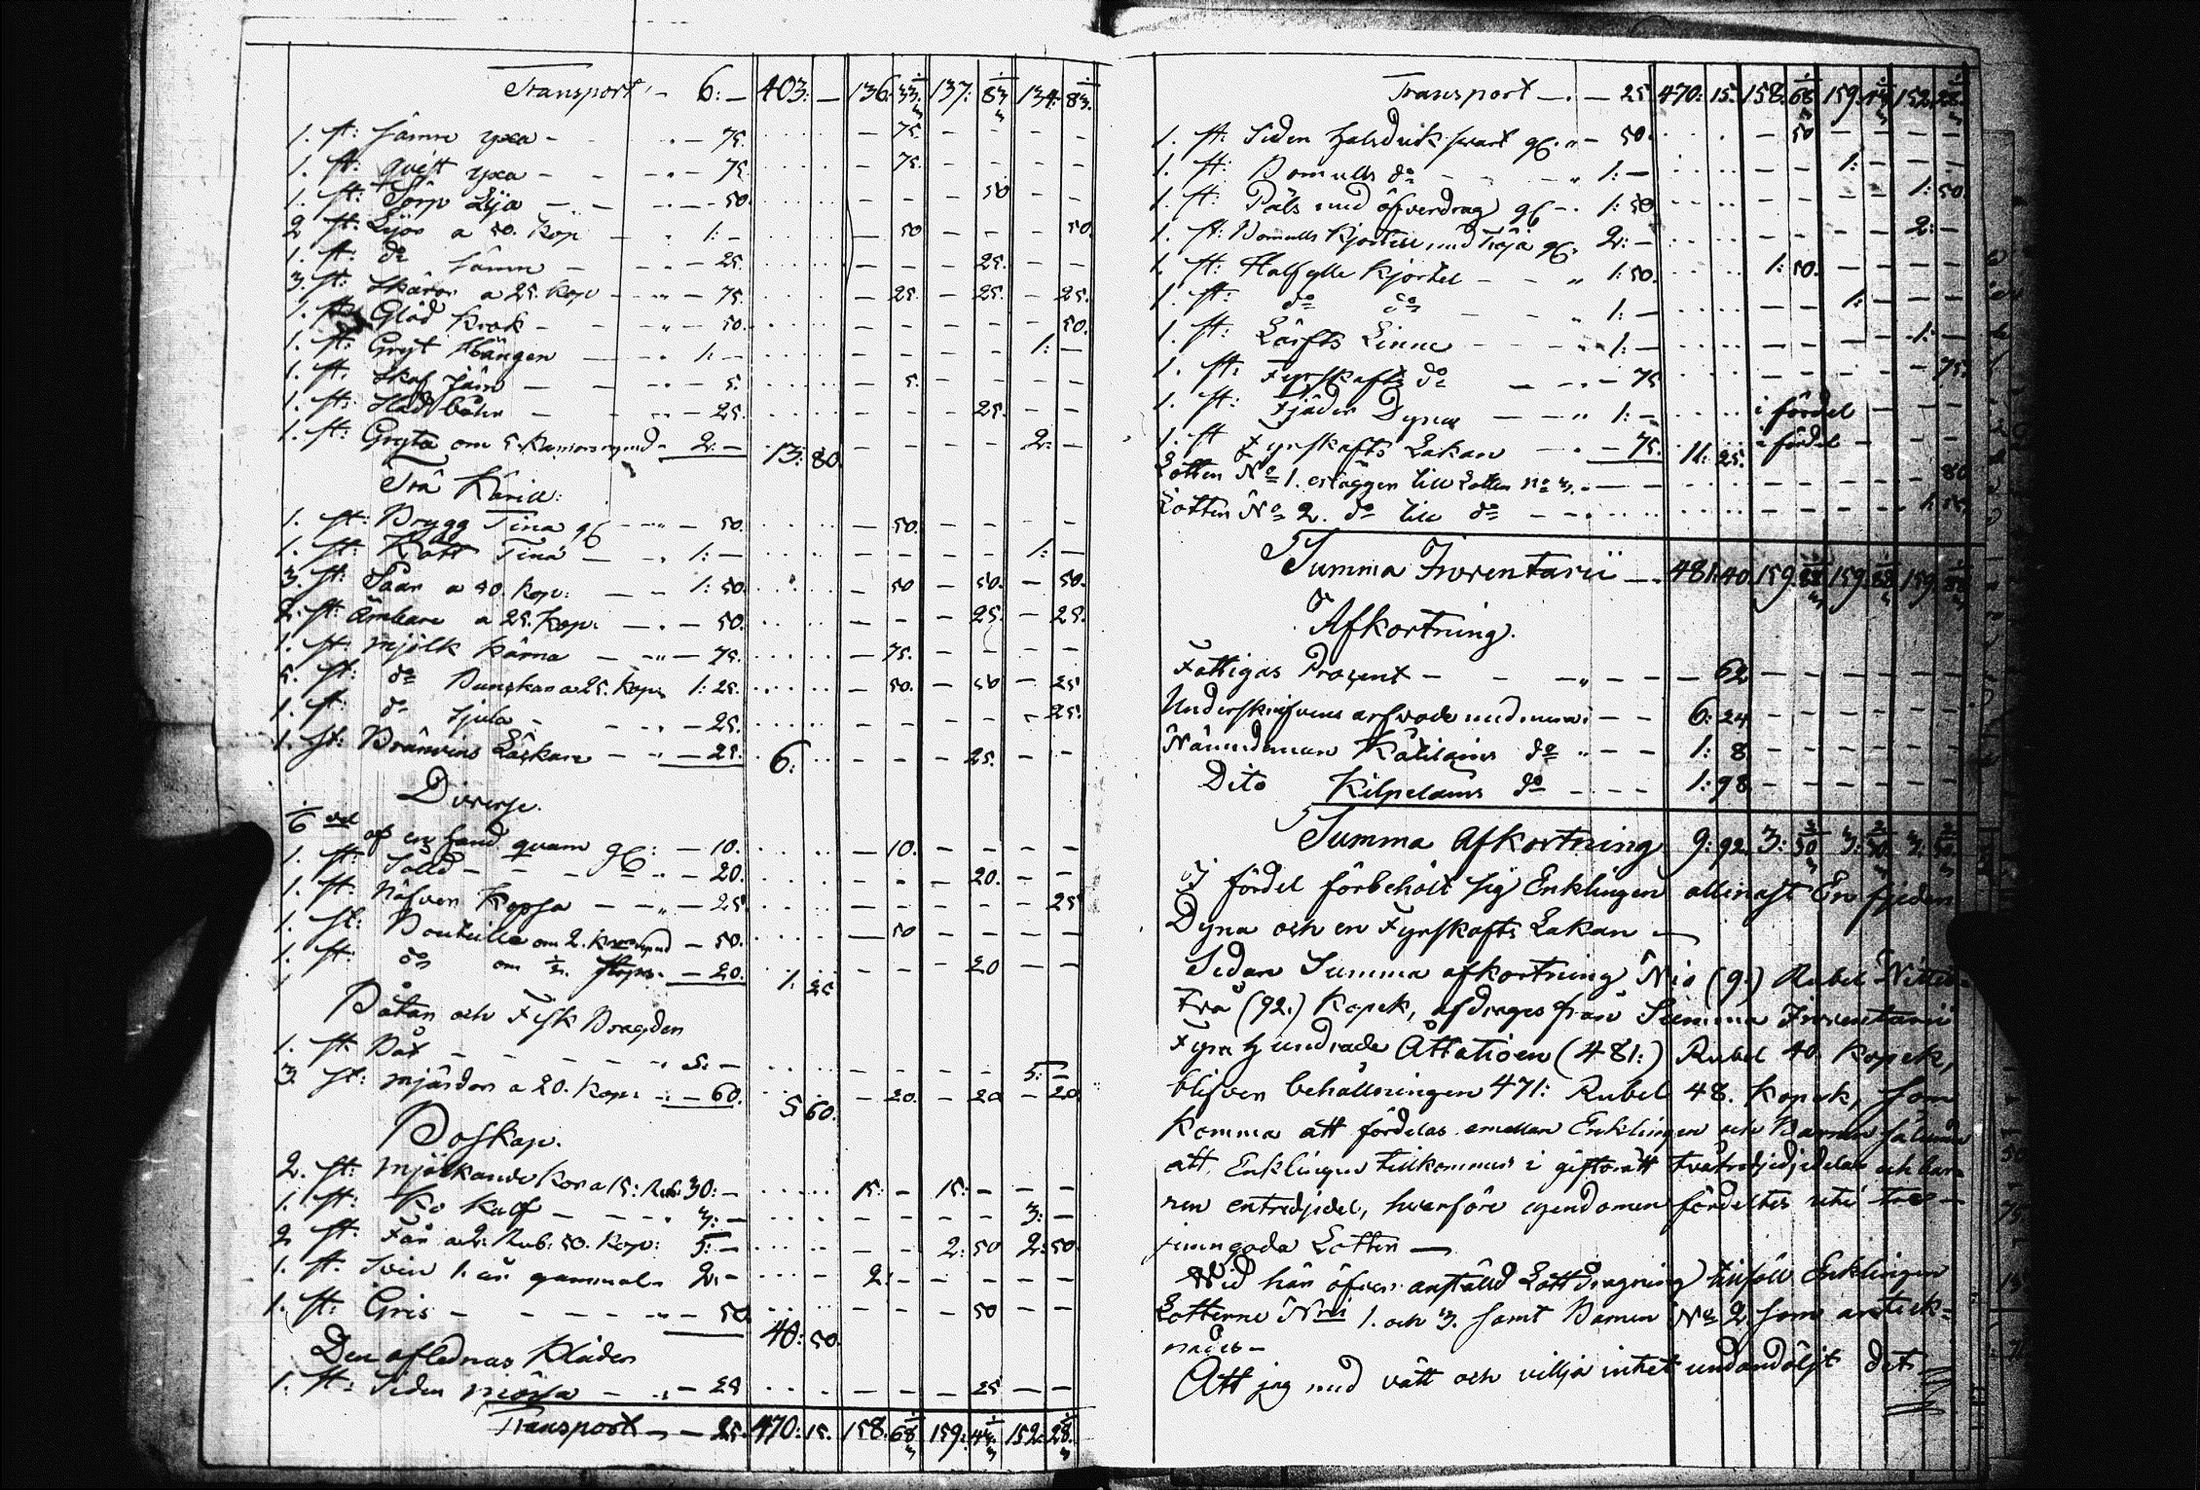 Transport 6: — 403: — 136. 33. 137: 83 134: 83.
1. st: sämre yxa — 75. — 75.
1. st: qvist yxa — 75 — 75.
1. st: Törp Lija — 50. — 50
2 st: Lijor a 50. Kop 1: — — 50 — 50.
1. st: do sämre — 25. — 25.
3. st: Skäror a 25. Kop — 75. — 25. — 25. — 25.
1. st: Glöd Krok — 50. — 50.
1. st: Gryt — 1: — 1: —
1. st. Skaf järn — 5. — 5.
1. st: — 25. — 25.
1. st: Gryta om 5. — 2: — 13: 80. 2: —
Trä Käril:
1. st: Brygg Tina gl — 50. — 50.
1. st: Tina — 1: — 1: —
3. st: Saar a 50. Kop: — 1: 50. — 50 — 50. — 50.
2. st: Ämbare a 25. Kop. — 50. — 25. — 25.
1. st: mjölk kärna — 75. — 75.
5. st: do Bunckar a 25. Kop. 1: 25. — 50. — 50 — 25
1. st: do — 25. — 25.
1. st: Bränvins — 25. 6: — 25.
Diverse.
1/6 del af en hand qvarn gl: — 10. — 10.
1. st: Solld — 20. — 20.
1. st: Näfver — 25 — 25
1. st: Bouteille om 2. — 50. — 50
1. st: do om 1/2. stop. — 20. 1: 25 — 20
Båtar och Fisk
1. st. Båt — 5: — 5: —
3. st: mjärdor a 20. Kop: — 60. 5 60. — 20. — 20 — 20
Boskap.
2. st: mjölkande Kor a 15: Rub: 30: — 15: — 15: —
1. st: Ko Kalf — 3: — 3: —
2 st: Får a 2: Rub: 50. Kop: 5: — 2: 50 2: 50.
1. st. Svin 1. år gammal 2: — 2: —
1. st: Gris — 50. 40: 50. — 50
Den aflednas Kläder
1. st: Siden mössa — 25 — 25
Transport — 25. 470: 15. 158: 68 159: 44 152: 28
Transport — 25 470: 15. 158. 68 159. 152: 28
1. st: Siden halsduk svart gl. — 50. — 50
1. st: Bomulls do — 1: — 1: —
1. st: Päls med öfverdrag gl — 1: 50 1: 50.
1. st: Bomulls Kjortell med Tröja gl. 2: — 2: —
1. st: Halfylle Kjortel — 1: 50. 1: 50.
1. st: do do — 1: — 1: —
1. st: Lärfts Linne — 1: — 1: —
1. st. Fyrskafts do — 75 — 75.
1. st: Fjäder Dyna — 1: — i fördel
1. st Fyrskafts Lakan — 75. 11: 25. i fördel
Lotten No 1. erlägger till Lotten no 3. — 80
Lotten No 2. do till do — 1. 55.
Summa Inventarii — 481: 40. 159. 159. 159.
Afkortning.
Fattigas Procent — 62
Underskrifvens arfvode med mera: — 6: 24
Nämndeman do — 1: 8
Dito do — 1: 98
Summa Afkortning 9: 92. 3: 3: 3:
I fördel förbehölt sig Enklingen allenast En fjeder
Dyna och en Fyrskafts Lakan —
Sedan Summa afkortning Nio (9.) Rubel Nittio-
Två (92.) Kopek, afdrages från Summa Inventarii
Fyra hundrade Åttatioen (481:) Rubel 40. Kopek,
blifver behållningen 471: Rubel 48. Kopek, som
komma att fördelas emellan Enklingen och Barnen sålunda
att Enklingen tillkommer i giftorätt två tredjedelar och bar-
nen entredjedel, hvarföre egendomen fördeltes uti tre —
jemngoda Lotter —
Wid här öfver anställd Lottdragning tillföll Enklingen
Lotterne Nris 1. och 3. samt Barnen No 2. som anteck-
nades —
Att jag med vett och vilja intet undandöljt det